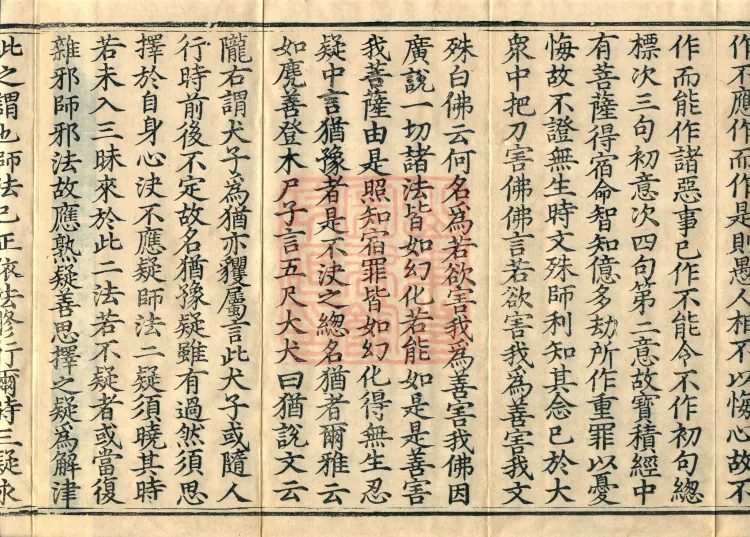 作不應作而作是則愚人相不以悔心故不
作而能作諸惡事已作不能令不作初句緫
標次三句初意次四句第二意故寶積經中
有菩薩得宿命智知億多劫所作重罪以憂
悔故不證無生時文殊師利知其念已於大
衆中把刀害佛佛言若欲害我爲善害我文
殊白佛云何名爲若欲害我爲善害我佛因
廣說一切諸法皆如幻化若能如是是善害
我菩薩由是照知宿罪皆如幻化得無生忍
疑中言猶豫者是不決之緫名猶者爾雅云
如麂善登木尸子言五尺大犬曰猶說文云
隴右謂犬子爲猶亦玃屬言此犬子或隨人
行時前後不定故名猶豫疑雖有過然須思
擇於自身心決不應疑師法二疑須曉其時
若未入三昧來於此二法若不疑者或當復
雜邪師邪法故應熟疑善思擇之疑爲解津
此之謂也師法已正依法修行爾時三疑永